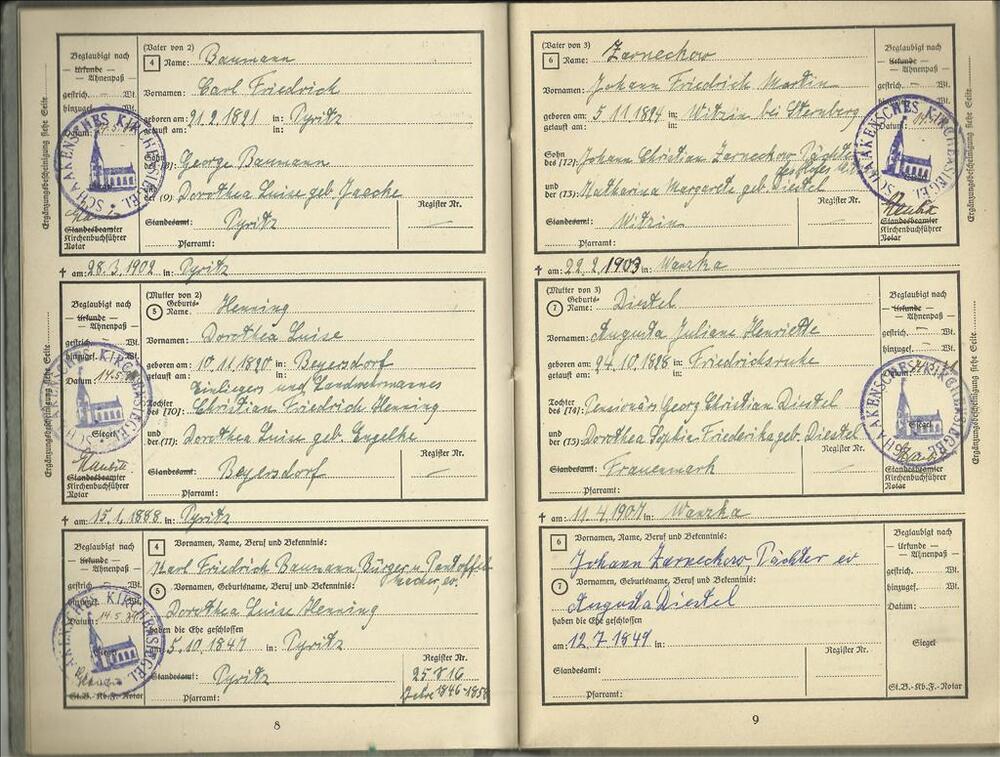 (Vater von 2)
4 Name: Baumann
Vornamen: Carl Friedrich
geboren am: 21.2.1821 in: Pyritz
getauft am: in:
Sohn des (8): George Baumann
und der (9) Dorothea Luise geb. Jaecke
Register Nr. —
Standesamt: Pyritz
Pfarramt:
Beglaubigt nach
— Urkunde —
— Ahnenpaß —
gestrich. — Wt.
hinzugef. — Wt.
Datum: 14.5.
SCHAAKENSCHES KIRCHENSIEGEL
Standesbeamter
Kirchenbuchführer
Notar
Ergänzungsbescheinigung siehe Seite
† am: 28.3.1902 in: Pyritz
(Mutter von 2)
5 Geburts-Name: Henning
Vornamen: Dorothea Luise
geboren am: 10.11.1820 in: Beyersdorf
getauft am: in:
Einliegers und Landwehrmannes
Tochter des [10]: Christian Friedrich Henning
und der (11): Dorothea Luise geb. Engelke
Register Nr. —
Standesamt: Beyersdorf
Pfarramt:
Beglaubigt nach
— Urkunde —
— Ahnenpaß —
gestrich. — Wt.
hinzugef. — Wt.
Datum: 14.5.
Siegel
Standesbeamter
Kirchenbuchführer
Notar
Ergänzungsbescheinigung siehe Seite
† am: 15.1.1888 in: Pyritz
4 Vornamen, Name, Beruf und Bekenntnis:
Karl Friedrich Baumann, Bürger u. Pantoffel-
macher, ev.
5 Vornamen, Geburtsname, Beruf und Bekenntnis:
Dorothea Luise Henning
haben die Ehe geschlossen
am: 5.10.1847 in: Pyritz
Register Nr.
Standesamt: Pyritz 25 § 16
Pfarramt: Jahr 1846-185
Beglaubigt nach
— Urkunde —
— Ahnenpaß —
gestrich. — Wt.
Datum: 14.5.
St.B.-Kb.F.-Notar
8
(Vater von 3)
6 Name: Zarneckow
Vornamen: Johann Friedrich Martin
geboren am: 5.11.1824 in: Witzin bei Sternberg
getauft am: in:
Sohn des [12]: Johann Christian Zarneckow Pächter
und der (13): Katharina Margarete geb. Diestel
Register Nr. —
Standesamt: Witzin
Pfarramt:
Beglaubigt nach
— Urkunde —
— Ahnenpaß —
gestrich. — Wt.
hinzugef. — Wt.
Datum:
SCHAAKENSCHES KIRCHENSIEGEL
Standesbeamter
Kirchenbuchführer
Notar
Ergänzungsbescheinigung siehe Seite
† am: 22.2.1903 in: Wanzka
(Mutter von 3)
7 Geburts-Name: Diestel
Vornamen: Augusta Juliane Henriette
geboren am: 24.10.1828 in: Friedrichsruhe
getauft am: in:
Tochter des [14]: Pensionärs Georg Christian Diestel
und der (15): Dorothea Sophie Friederika geb. Diestel
Register Nr. —
Standesamt: Frauenmark
Pfarramt:
Beglaubigt nach
— Urkunde —
— Ahnenpaß —
gestrich. — Wt.
hinzugef. — Wt.
Siegel
Standesbeamter
Kirchenbuchführer
Notar
Ergänzungsbescheinigung siehe Seite
† am: 11.4.1907 in: Wanzka
6 Vornamen, Name, Beruf und Bekenntnis:
Johann Zarneckow, Pächter ev
7 Vornamen, Geburtsname, Beruf und Bekenntnis:
Augusta Diestel
haben die Ehe geschlossen
am: 12.7.1849 in:
Register Nr.
Standesamt:
Pfarramt:
Beglaubigt nach
— Urkunde —
— Ahnenpaß —
gestrich. Wt.
hinzugef. Wt.
Datum:
Siegel
St.B.-Kb.F.-Notar
9